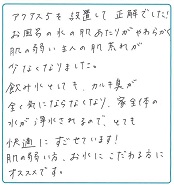 アクアス5を設置して正解でした!
お風呂の水の肌あたりがやわらかく
肌の弱い主人の肌荒れが
少なくなりました。
飲み水としても、カルキ臭が
全く気にならなくなり、家全体の
水が浄水されるので、とても
快適にすごせています!
肌の弱い方、お水にこだわる方に
オススメです。